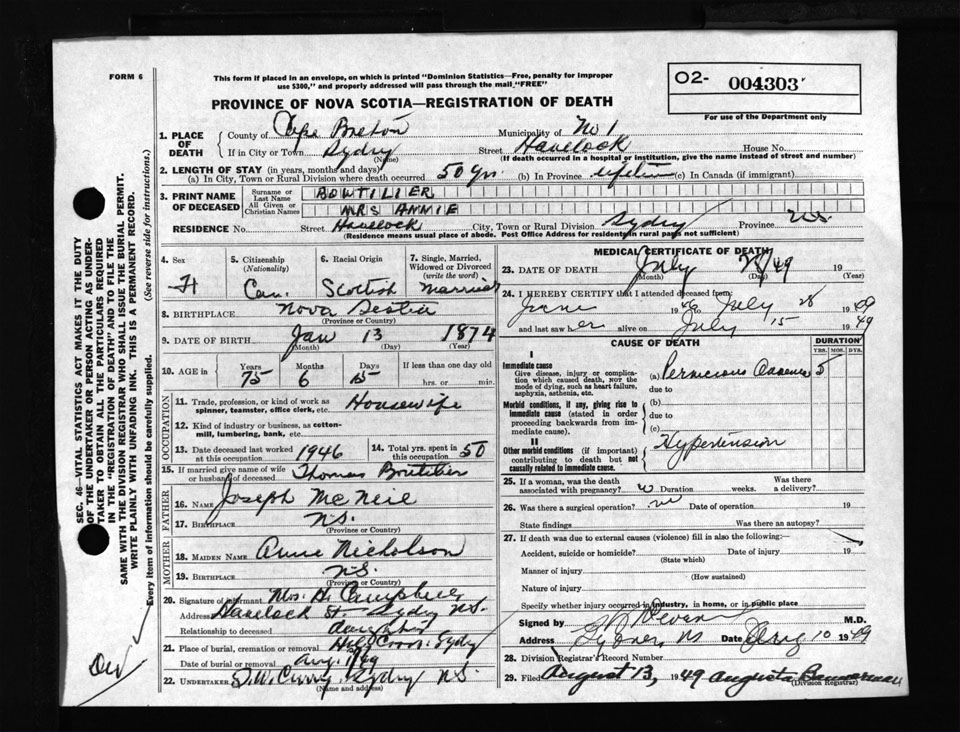 FORM 6
This form if placed in an envelope, on which is printed "Dominion Statistics—Free, penalty for improper
use $300," and properly addressed will pass through the mail "FREE"
O2- 004303
For use of the Department only
PROVINCE OF NOVA SCOTIA—REGISTRATION OF DEATH
SEC. 46—VITAL STATISTICS ACT MAKES IT THE DUTY
OF THE UNDERTAKER OR PERSON ACTING AS UNDER-
TAKER TO OBTAIN ALL THE PARTICULARS REQUIRED
IN THE "REGISTRATION OF DEATH" AND TO FILE THE
SAME WITH THE DIVISION REGISTRAR WHO SHALL ISSUE THE BURIAL PERMIT.
WRITE PLAINLY WITH UNFADING INK. THIS IS A PERMANENT RECORD.
Every item of information should be carefully supplied. (See reverse side for instructions.)
1. PLACE OF DEATH
County of Cape Breton Municipality of No 1
If in City or Town Sydney (Name) Street Havelock House No.
(If death occurred in a hospital or institution, give the name instead of street and number)
2. LENGTH OF STAY (in years, months and days)
(a) In City, Town or Rural Division where death occurred 50 yrs. (b) In Province lifetime (c) In Canada (if immigrant)
3. PRINT NAME OF DECEASED
Surname or Last Name BOWTILIER
All Given or Christian Names MRS ANNIE
RESIDENCE No. Street Havelock City, Town or Rural Division Sydney Province N.S.
(Residence means usual place of abode. Post Office Address for residents in rural parts not sufficient)
4. Sex F
5. Citizenship (Nationality) Can.
6. Racial Origin Scottish
7. Single, Married, Widowed or Divorced (write the word) Married
8. BIRTHPLACE Nova Scotia
(Province or Country)
9. DATE OF BIRTH Jan 13 1874
(Month) (Day) (Year)
10. AGE in Years 75 Months 6 Days 15 If less than one day old hrs. or min.
OCCUPATION
11. Trade, profession, or kind of work as spinner, teamster, office clerk, etc. Housewife
12. Kind of industry or business, as cotton-mill, lumbering, bank, etc.
13. Date deceased last worked at this occupation 1946
14. Total yrs. spent in this occupation 50
15. If married give name of wife or husband of deceased Thomas Boutilier
FATHER
16. NAME Joseph McNeil
17. BIRTHPLACE N.S.
(Province or Country)
MOTHER
18. MAIDEN NAME Annie Nicholson
19. BIRTHPLACE N.S.
(Province or Country)
20. Signature of informant Mrs. D. Campbell
Address Havelock St. Sydney N.S.
Relationship to deceased daughter
21. Place of burial, cremation or removal Holy Cross. Sydney
Date of burial or removal Aug. 1/49
22. UNDERTAKER D.W. Curry Sydney N.S.
(Name and address)
MEDICAL CERTIFICATE OF DEATH
23. DATE OF DEATH July 28/49 19
(Month) (Day) (Year)
24. I HEREBY CERTIFY that I attended deceased from:
June 1946 to July 28 1949
and last saw her alive on July 15 1949
CAUSE OF DEATH
DURATION
YRS. MOS. DYS.
I
Immediate cause
Give disease, injury or complication which caused death, NOT the mode of dying, such as heart failure, asphyxia, asthenia, etc.
(a) Pernicious Anaemia 5
due to
Morbid conditions, if any, giving rise to immediate cause (stated in order proceeding backwards from immediate cause).
(b)
due to
(c)
II
Other morbid conditions (if important) contributing to death but not causally related to immediate cause.
Hypertension
25. If a woman, was the death associated with pregnancy? Duration weeks. Was there a delivery?
26. Was there a surgical operation? Date of operation. 19
State findings Was there an autopsy?
27. If death was due to external causes (violence) fill in also the following:—
Accident, suicide or homicide? (State which) Date of injury 19
Manner of injury
(How sustained)
Nature of injury
Specify whether injury occurred in industry, in home, or in public place
Signed by M.D.
Address Sydney, NS Date Aug 10 1949
28. Division Registrar's Record Number
29. Filed August 13, 1949 Augusta
(Division Registrar)